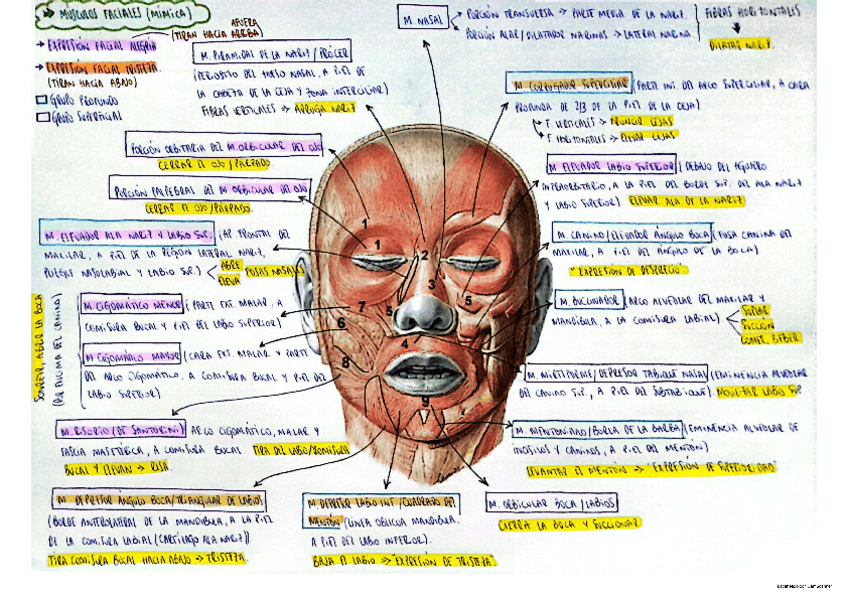 MUSCULOS FACIALES (MÍMICA)
AFUERA
(TIRAN HACIA ARRIBA)
→ EXPRESIÓN FACIAL ALEGRÍA
→ EXPRESIÓN FACIAL TRISTEZA
(TIRAN HACIA ABAJO)
GRUPO PROFUNDO
GRUPO SUPERFICIAL
M. PIRAMIDAL DE LA NARIZ/PRÓCER
(PERIOSTIO DEL HUESO NASAL, A PIEL DE
LA CABEZA DE LA CEJA Y ZONA INTERCILIAR)
FIBRAS VERTICALES → ARRUGA NARIZ
M. NASAL
PORCIÓN TRANSVERSA → PARTE MEDIA DE LA NARIZ.
PORCIÓN ALAR/DILATADOR NARINAS → LATERAL NARINA
FIBRAS HORIZONTALES
DILATAR NARIZ.
M. CORRUGADOR SUPERCILIAR (PARTE INT. DEL ARCO SUPERCILIAR, A CARA
PROFUNDA DE 2/3 DE LA PIEL DE LA CEJA)
F. VERTICALES → FRUNCIR CEJAS
F. HORIZONTALES → ELEVAR CEJAS
PORCIÓN ORBITARIA DEL M. ORBICULAR DEL OJO
CERRAR EL OJO/PÁRPADO
PORCIÓN PALPEBRAL DEL M. ORBICULAR DEL OJO
CERRAR EL OJO/PÁRPADO.
M. ELEVADOR LABIO SUPERIOR (DEBAJO DEL AGUJERO
INFRAORBITARIO, A LA PIEL DEL BORDE SUP. DEL ALA NARIZ
Y LABIO SUPERIOR) ELEVAR ALA DE LA NARIZ
M. ELEVADOR ALA NARIZ Y LABIO SUP. (AP. FRONTAL DEL
MAXILAR, A PIEL DE LA REGION LATERAL NARIZ,
PLIEGUE NASOLABIAL Y LABIO SUP.)
ABRE
ELEVA
FOSAS NASALES
M. CANINO/ELEVADOR ÁNGULO BOCA (FOSA CANINA DEL
MAXILAR, A PIEL DEL ÁNGULO DE LA BOCA)
"EXPRESIÓN DE DESPRECIO"
SONREÍR, ABRIR LA BOCA
(POR ENCIMA DEL CANINO)
M. CIGOMÁTICO MENOR (PARTE EXT. MALAR, A
COMISURA BUCAL Y PIEL DEL LABIO SUPERIOR)
M. CIGOMÁTICO MAYOR (CARA EXT. MALAR Y PARTE
DEL ARCO CIGOMÁTICO, A COMISURA BUCAL Y PIEL DEL
LABIO SUPERIOR)
M. BUCCINADOR (ARCO ALVEOLAR DEL MAXILAR Y
MANDIBULA, A LA COMISURA LABIAL)
SOPLAR
SUCCIÓN
COMER, BEBER
M. MIRTIFORME/DEPRESOR TABIQUE NASAL (EMINENCIA ALVEOLAR
DEL CANINO SUP., A PIEL DEL SUBTABIQUE) MOVILIZAR LABIO SUP
M. RISORIO (DE SANTORINI) ARCO CIGOMÁTICO, MALAR Y
FASCIA MASETÉRICA, A COMISURA BUCAL TIRA DEL LABIO/COMISURA
BUCAL Y ELEVAN → RISA.
M. MENTONIANO/BORLA DE LA BARBA (EMINENCIA ALVEOLAR DE
INCISIVOS Y CANINOS, A PIEL DEL MENTON)
LEVANTAR EL MENTON → "EXPRESION DE SUPERIORIDAD"
M. DEPRESOR ÁNGULO BOCA/TRIANGULAR DE LABIOS
(BORDE ANTEROLATERAL DE LA MANDIBULA, A LA PIEL
DE LA COMISURA LABIAL (CARTILAGO ALA NARIZ)).
TIRA COMISURA BUCAL HACIA ABAJO → TRISTEZA.
M. DEPRESOR LABIO INF./CUADRADO DEL
MENTÓN (LÍNEA OBLICUA MANDIBULA.
A PIEL DEL LABIO INFERIOR).
BAJA EL LABIO → "EXPRESIÓN DE TRISTEZA".
M. ORBICULAR BOCA/LABIOS
CIERRA LA BOCA Y SUCCIONAR
1
1
2
3
5
5
7
6
4
8
9